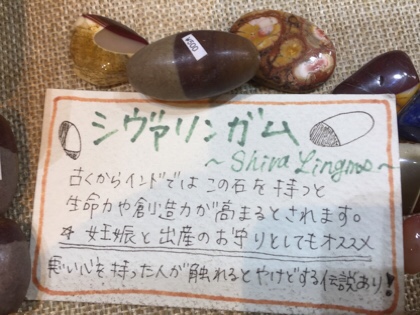 ¥500
シヴァリンガム
～Shiva Lingam～
古くからインドではこの石を持つと
生命力や創造力が高まるとされます。
妊娠と出産のお守りとしてもオススメ
悪い心を持った人が触れるとやけどする伝説あり!